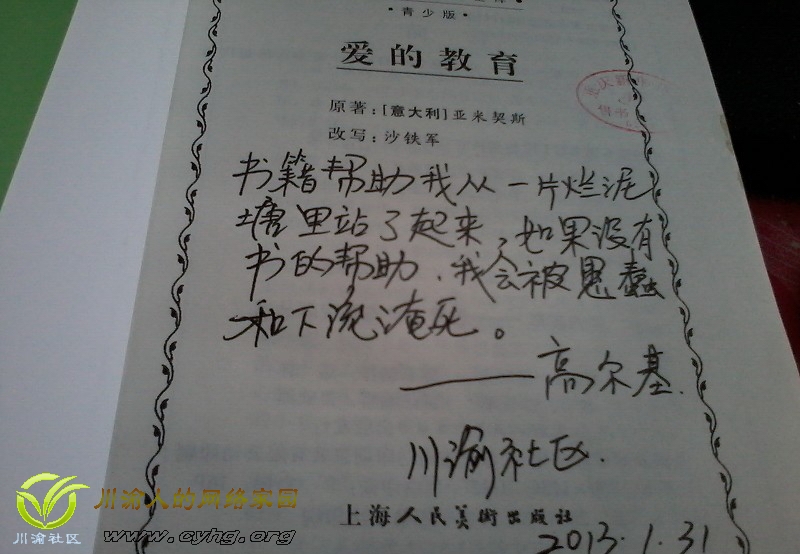 ·青少版·
爱的教育
原著：[意大利]亚米契斯
改写：沙铁军
书籍帮助我从一片烂泥
塘里站了起来，如果没有
书的帮助，我会被愚蠢
和下流淹死。
——高尔基.
川渝社区.
上海人民美術出版社
2013.1.31
川渝人的网络家园
www.cyhg.org
川渝社区